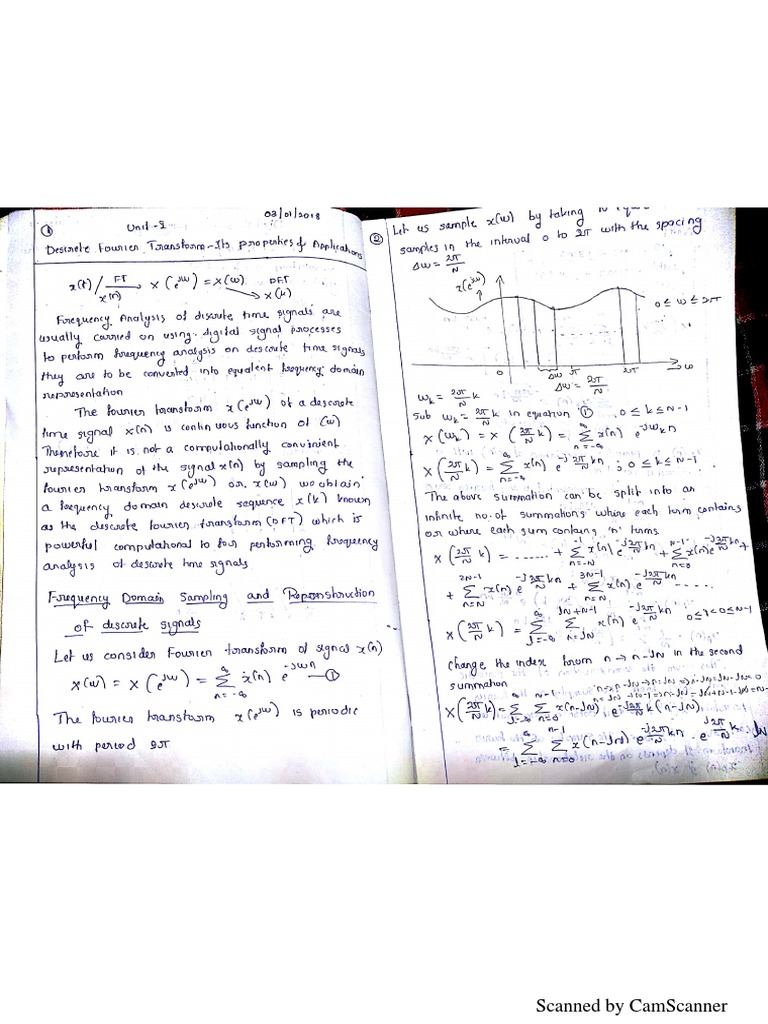 ① Unit-I 03/01/2018
Descrete Fourier Transform-Its Properties & Applications
x(t)/x(n) FT→ X(e^jω) = X(ω) DFT→ X(k)
Frequency Analysis of discrete time signals are
usually carried on using digital signal processes
to perform frequency analysis on descrete time signals
they are to be converted into equalent frequency domain
representation
The fourier transform X(e^jω) of a descrete
time signal x(n) is continuous function of (ω)
Therefore it is not a computationally convinient
representation of the signal x(n) by sampling the
fourier transform X(e^jω) or X(ω) we obtain
a frequency domain descrete sequence X(k) known
as the descrete fourier transform (DFT) which is
powerful computational to for performing frequency
analysis of descrete time signals
Frequency Domain Sampling and Reponstruction
of descrete signals
Let us consider Fourier transform of signal x(n)
X(ω) = X(e^jω) = Σ_{n=-∞}^{∞} x(n) e^{-jωn} —①
The fourier transform X(e^jω) is periodic
with period 2π
② Let us sample X(ω) by taking N
samples in the interval 0 to 2π with the spacing
Δω = 2π/N
X(e^jω) ↑
0 ≤ ω ≤ 2π
0 Δω π 2π → ω
Δω = 2π/N
ω_k = 2π/N k
Sub ω_k = 2π/N k in equation ① 0 ≤ k ≤ N-1
X(ω_k) = X(2π/N k) = Σ_{n=-∞}^{∞} x(n) e^{-jω_k n}
X(2π/N k) = Σ_{n=-∞}^{∞} x(n) e^{-j2π/N kn} ; 0 ≤ k ≤ N-1
The above summation can be split into an
infinite no. of summations where each term contains
or where each sum contains 'n' terms
X(2π/N k) = ...... + Σ_{n=-N}^{-1} x(n) e^{-j2π/N kn} + Σ_{n=0}^{N-1} x(n) e^{-j2π/N kn} +
+ Σ_{n=N}^{2N-1} x(n) e^{-j2π/N kn} + Σ_{n=N}^{3N-1} x(n) e^{-j2π/N kn} .....
X(2π/N k) = Σ_{J=-∞}^{∞} Σ_{n=JN}^{JN+N-1} x(n) e^{-j2π/N kn}
change the index from n → n-JN in the second
summation
X(2π/N k) = Σ_{J=-∞}^{∞} Σ_{n=0}^{N-1} x(n-JN) e^{-j2π/N k(n-JN)}
= Σ_{J=-∞}^{∞} Σ_{n=0}^{n-1} x(n-JN) e^{-j2π/N kn} . e^{j2π/N k JN}
Scanned by CamScanner